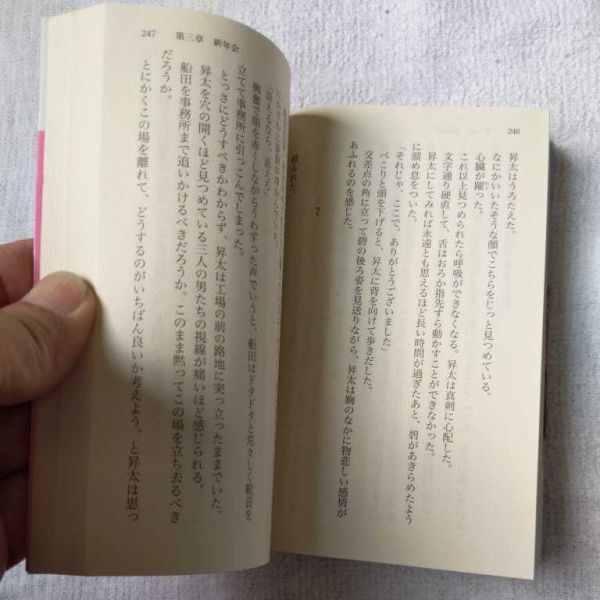 246
昇太はうろたえた。
なにかいいたそうな顔でこちらをじっと見つめている。
心臓が躍った。
これ以上見つめられたら呼吸ができなくなる。昇太は真剣に心配した。
文字通り硬直して、舌はおろか指先すら動かすことができなかった。
昇太にしてみれば永遠とも思えるほど長い時間が過ぎたあと、碧があきらめたよう
に溜め息をついた。
「それじゃ、ここで。ありがとうございました」
ぺこりと頭を下げると、昇太に背を向けて歩きだした。
交差点の角に立って碧の後ろ姿を見送りながら、昇太は胸のなかに物悲しい感情が
あふれるのを感じた。
7
殺られた。
247 第三章 新年会
訴えるなら、訴えろ」
興奮で顔を赤くしながらうわずった声でいうと、船田はドタドタと荒々しく靴音を
立てて事務所に引っこんでしまった。
とっさにどうすべきかわからず、昇太は工場の前の路地に突っ立ったままでいた。
昇太を穴の開くほど見つめている三人の男たちの視線が痛いほど感じられる。
船田を事務所まで追いかけるべきだろうか。このまま黙ってこの場を立ち去るべき
だろうか。
とにかくこの場を離れて、どうするのがいちばん良いか考えよう、と昇太は思っ